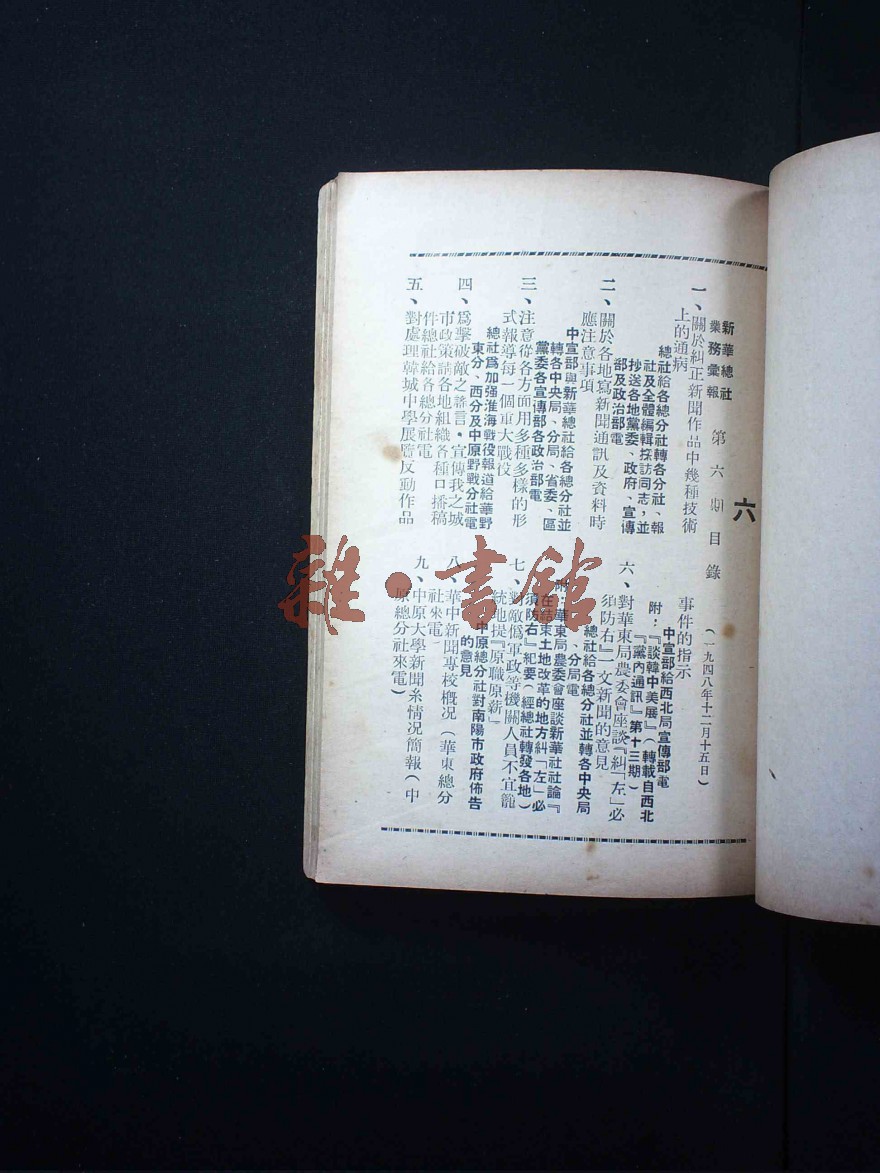 六
新華總社
業務彙報
第六期目錄
(一九四八年十二月十五日)
一、關於糾正新聞作品中幾種技術
上的通病
總社給各總分社轉各分社、報
社及全體編輯採訪同志,並
抄送各地黨委、政府、宣傳
部及政治部電
二、關於各地寫新聞通訊及資料時
應注意事項
中宣部與新華總社給各總分社並
轉各中央局、分局、省委、區
黨委各宣傳部各政治部電
三、注意從各方面用多種多樣的形
式報導每一個重大戰役
總社爲加强淮海戰役報道給華野
東分、西分及中原野戰分社電
四、爲擊破敵之謠言,宣傳我之城
市政策請各地組織各種口播稿
件總社給各總分社電
五、對處理韓城中學展覽反動作品
事件的指示
中宣部給西北局宣傳部電
附:『談韓中美展』(轉載自西北
『黨內通訊』第十三期)
六、對華東局農委會座談『糾「左」必
須防右』一文新聞的意見
總社給各總分社並轉各中央局
、分局電
附:華東局農委會座談新華社社論『
在結束土地改革的地方糾「左」必
須防右』紀要(經總社轉發各地)
七、對敵僞軍政等機關人員不宜籠
統地提『原職原薪』
中原總分社對南陽市政府佈告
的意見
八、華中新聞專校概況(華東總分
社來電)
九、中原大學新聞系情况簡報(中
原總分社來電)
雜·書館